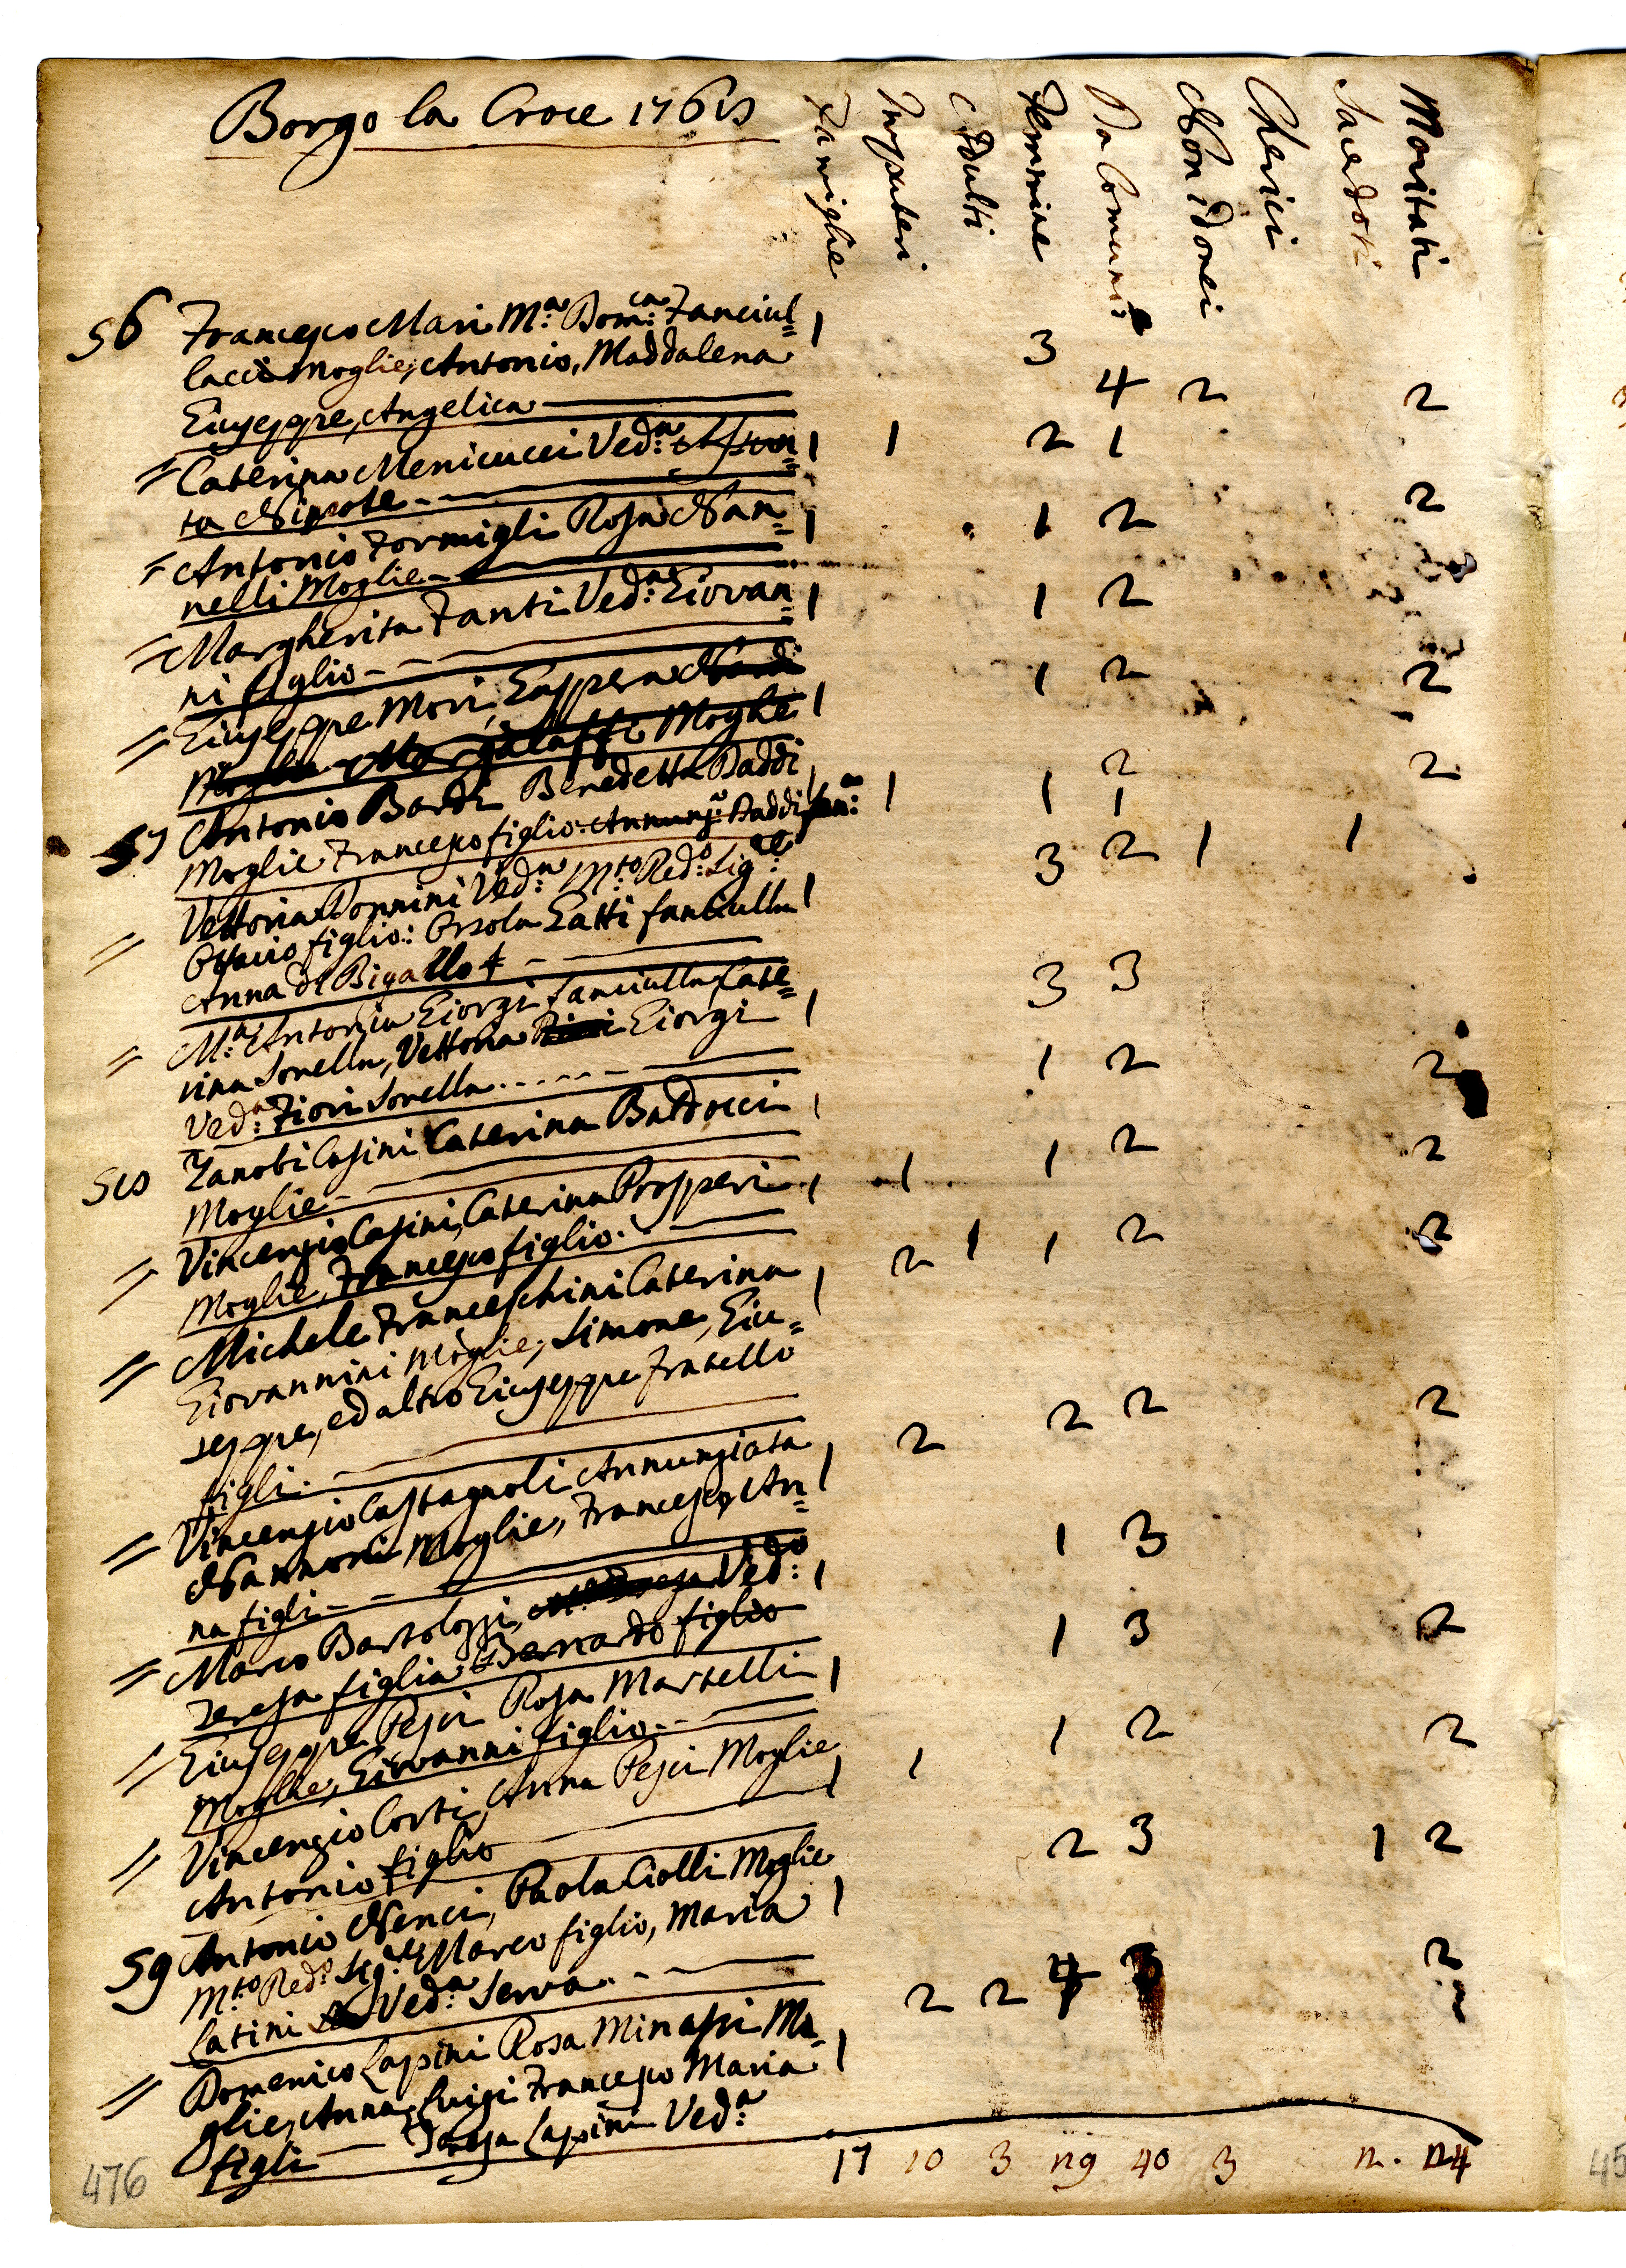 Borgo la Croce 176
Famiglie
Impuberi
Adulti
Femmine
Da Comuni:
Non idonei
Cherici
Sacerdoti
Maritati
56 Francesco Mari M:a Dom:ca Fanciul= 1
lacci Moglie, Antonio, Maddalena 3
Giuseppe, Angelica 4 2 2
= Caterina Menicucci Ved:a 1 1 2 1
ta Nipote
= Antonio Formigli Rosa Nan= 1 1 2 2
nelli Moglie
= Margherita Fanti Ved:a Giovan= 1 1 2
ni figlio
= Giuseppe Mori, Gaspera Nardi 1 2 2
Moglie 1
57 Antonio Bardi Benedetta Daddi 1 2 2
Moglie Francesco figlio Annunz:a Daddi fan:a 1 1 1
= Vettoria Donnini Ved:a M:to Red:o Sig:re 3 2 1 1
Ottavio figlio: Orsola Gatti fanciulla 1
Anna del Bigallo
= M:a Antonia Giorgi fanciulla Cate= 1 3 3
rina Sorella, Vettoria Giorgi
Ved:a Fiori Sorella
58 Zanobi Casini Caterina Baldocci 1 1 2 2
Moglie
= Vincenzio Casini, Caterina Prosperi 1 1 1 2 2
Moglie, Francesco figlio
= Michele Franceschini Caterina 1 2 1 1 2 2
Giovannini Moglie, Simone, Giu=
seppe, ed altro Giuseppe fratello
figli
= Vincenzio Castagnoli Annunziata 1 2 2 2 2
Nannoni Moglie, Francesco, An=
na figli
= Marco Bartolozzi, Ved:o 1 1 3
Teresa figlia Bernardo figlio
= Giuseppe Pesci Rosa Martelli 1 1 3 2
Moglie, Giovanni figlio
= Vincenzio Corti, Anna Pesci Moglie 1 1 1 2 2
Antonio figlio
59 Antonio Nenci, Paola Ciolli Moglie 2 3 1 2
M:to Red:o Sig:re Marco figlio, Maria 1
Latini Ved:a Serva
= Domenico Lapini Rosa Minassi Mo= 1 2 2 4 2
glie, Anna, Luigi Francesco Maria
figli Teresa Lapini Ved:a
17 10 3 29 40 3 2. 24
476
45